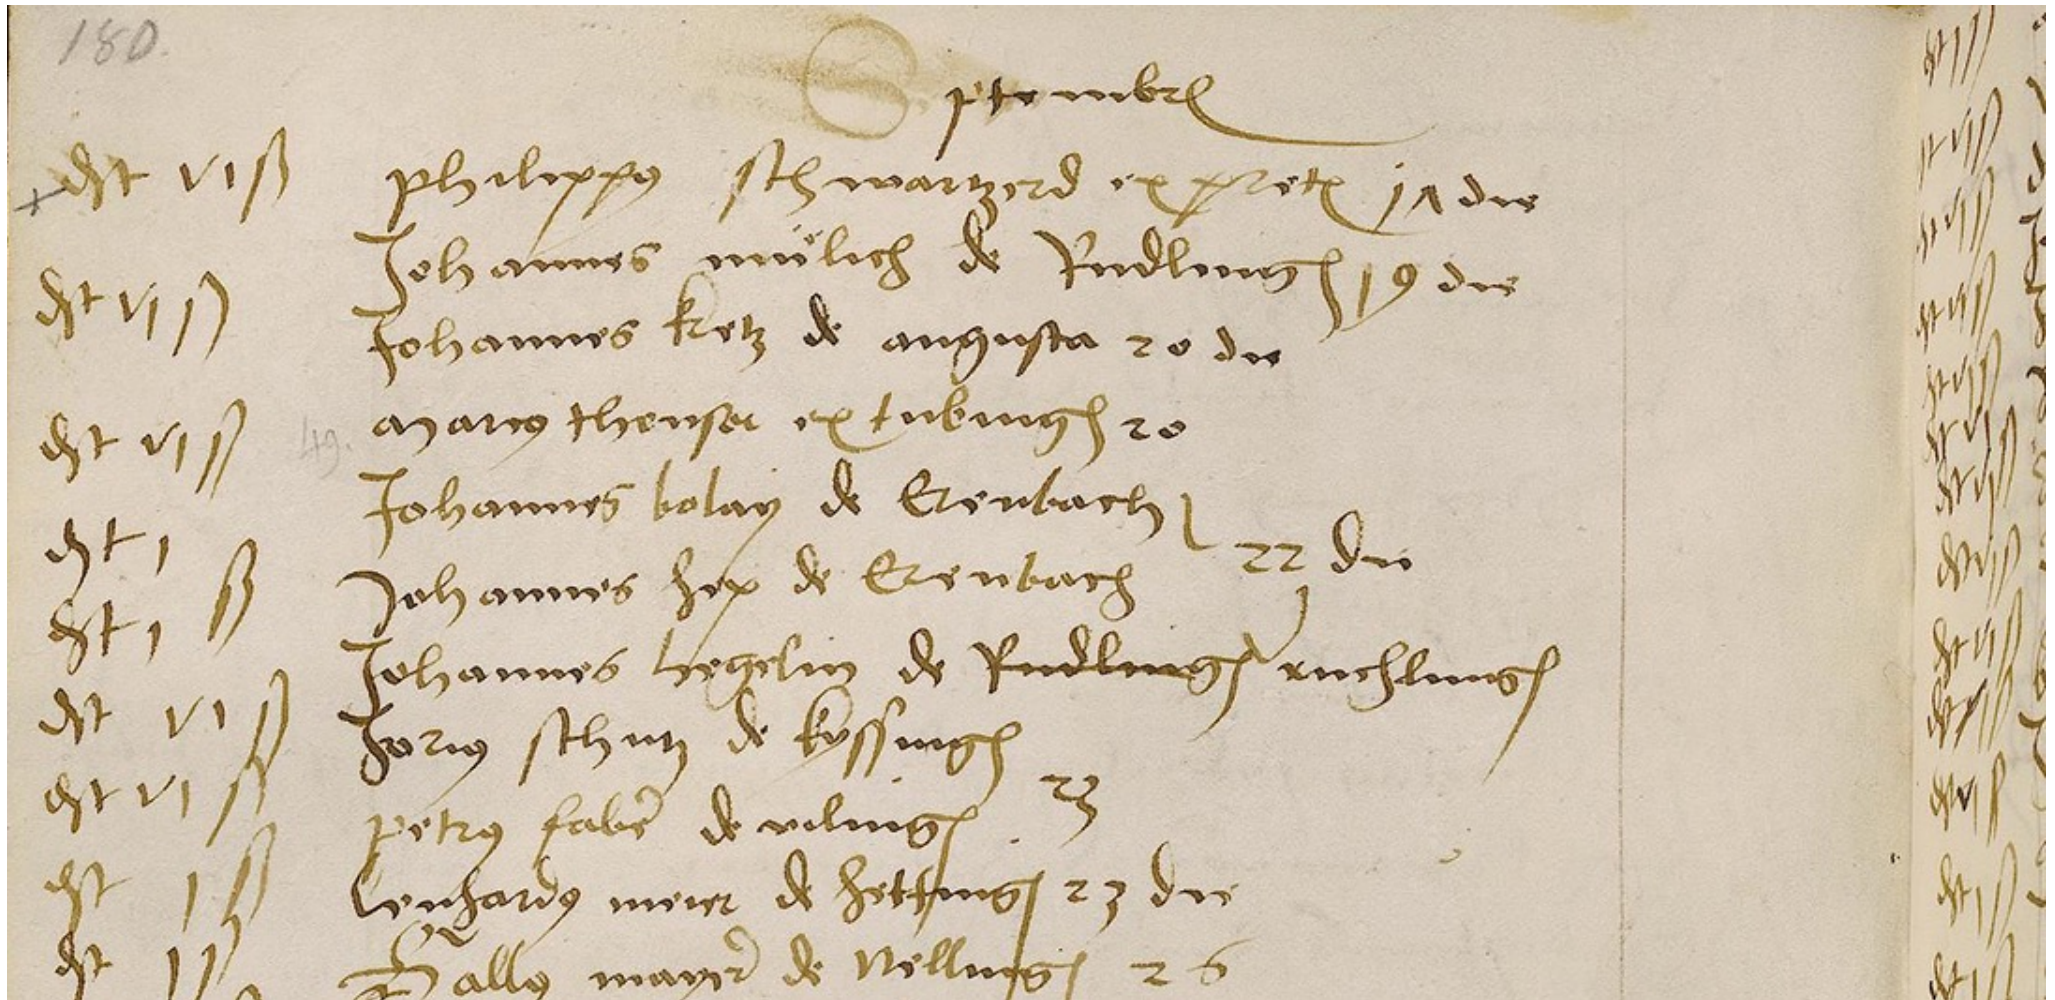 180.
Septembr
dt vi ß Philippus schwartzerd ex preten 17 die
Johannes mülich de Rudling 19 die
dt vi ß Johannes kretz de augusta 20 die
dt vi ß 49. marcus thenser ex tubing 20
Johannes bolay de Erenbach
dt i ß Johannes hex de Erenbach 22 die
dt i ß Johannes hegelin de Rudling ruchling
dt vi ß Jorius schutz de kyssing
dt vi ß petrus faber de viling 23
dt i ß Lenhardus meier de hetting 23 die
dt i ß Gallus mayer de Nelling 26